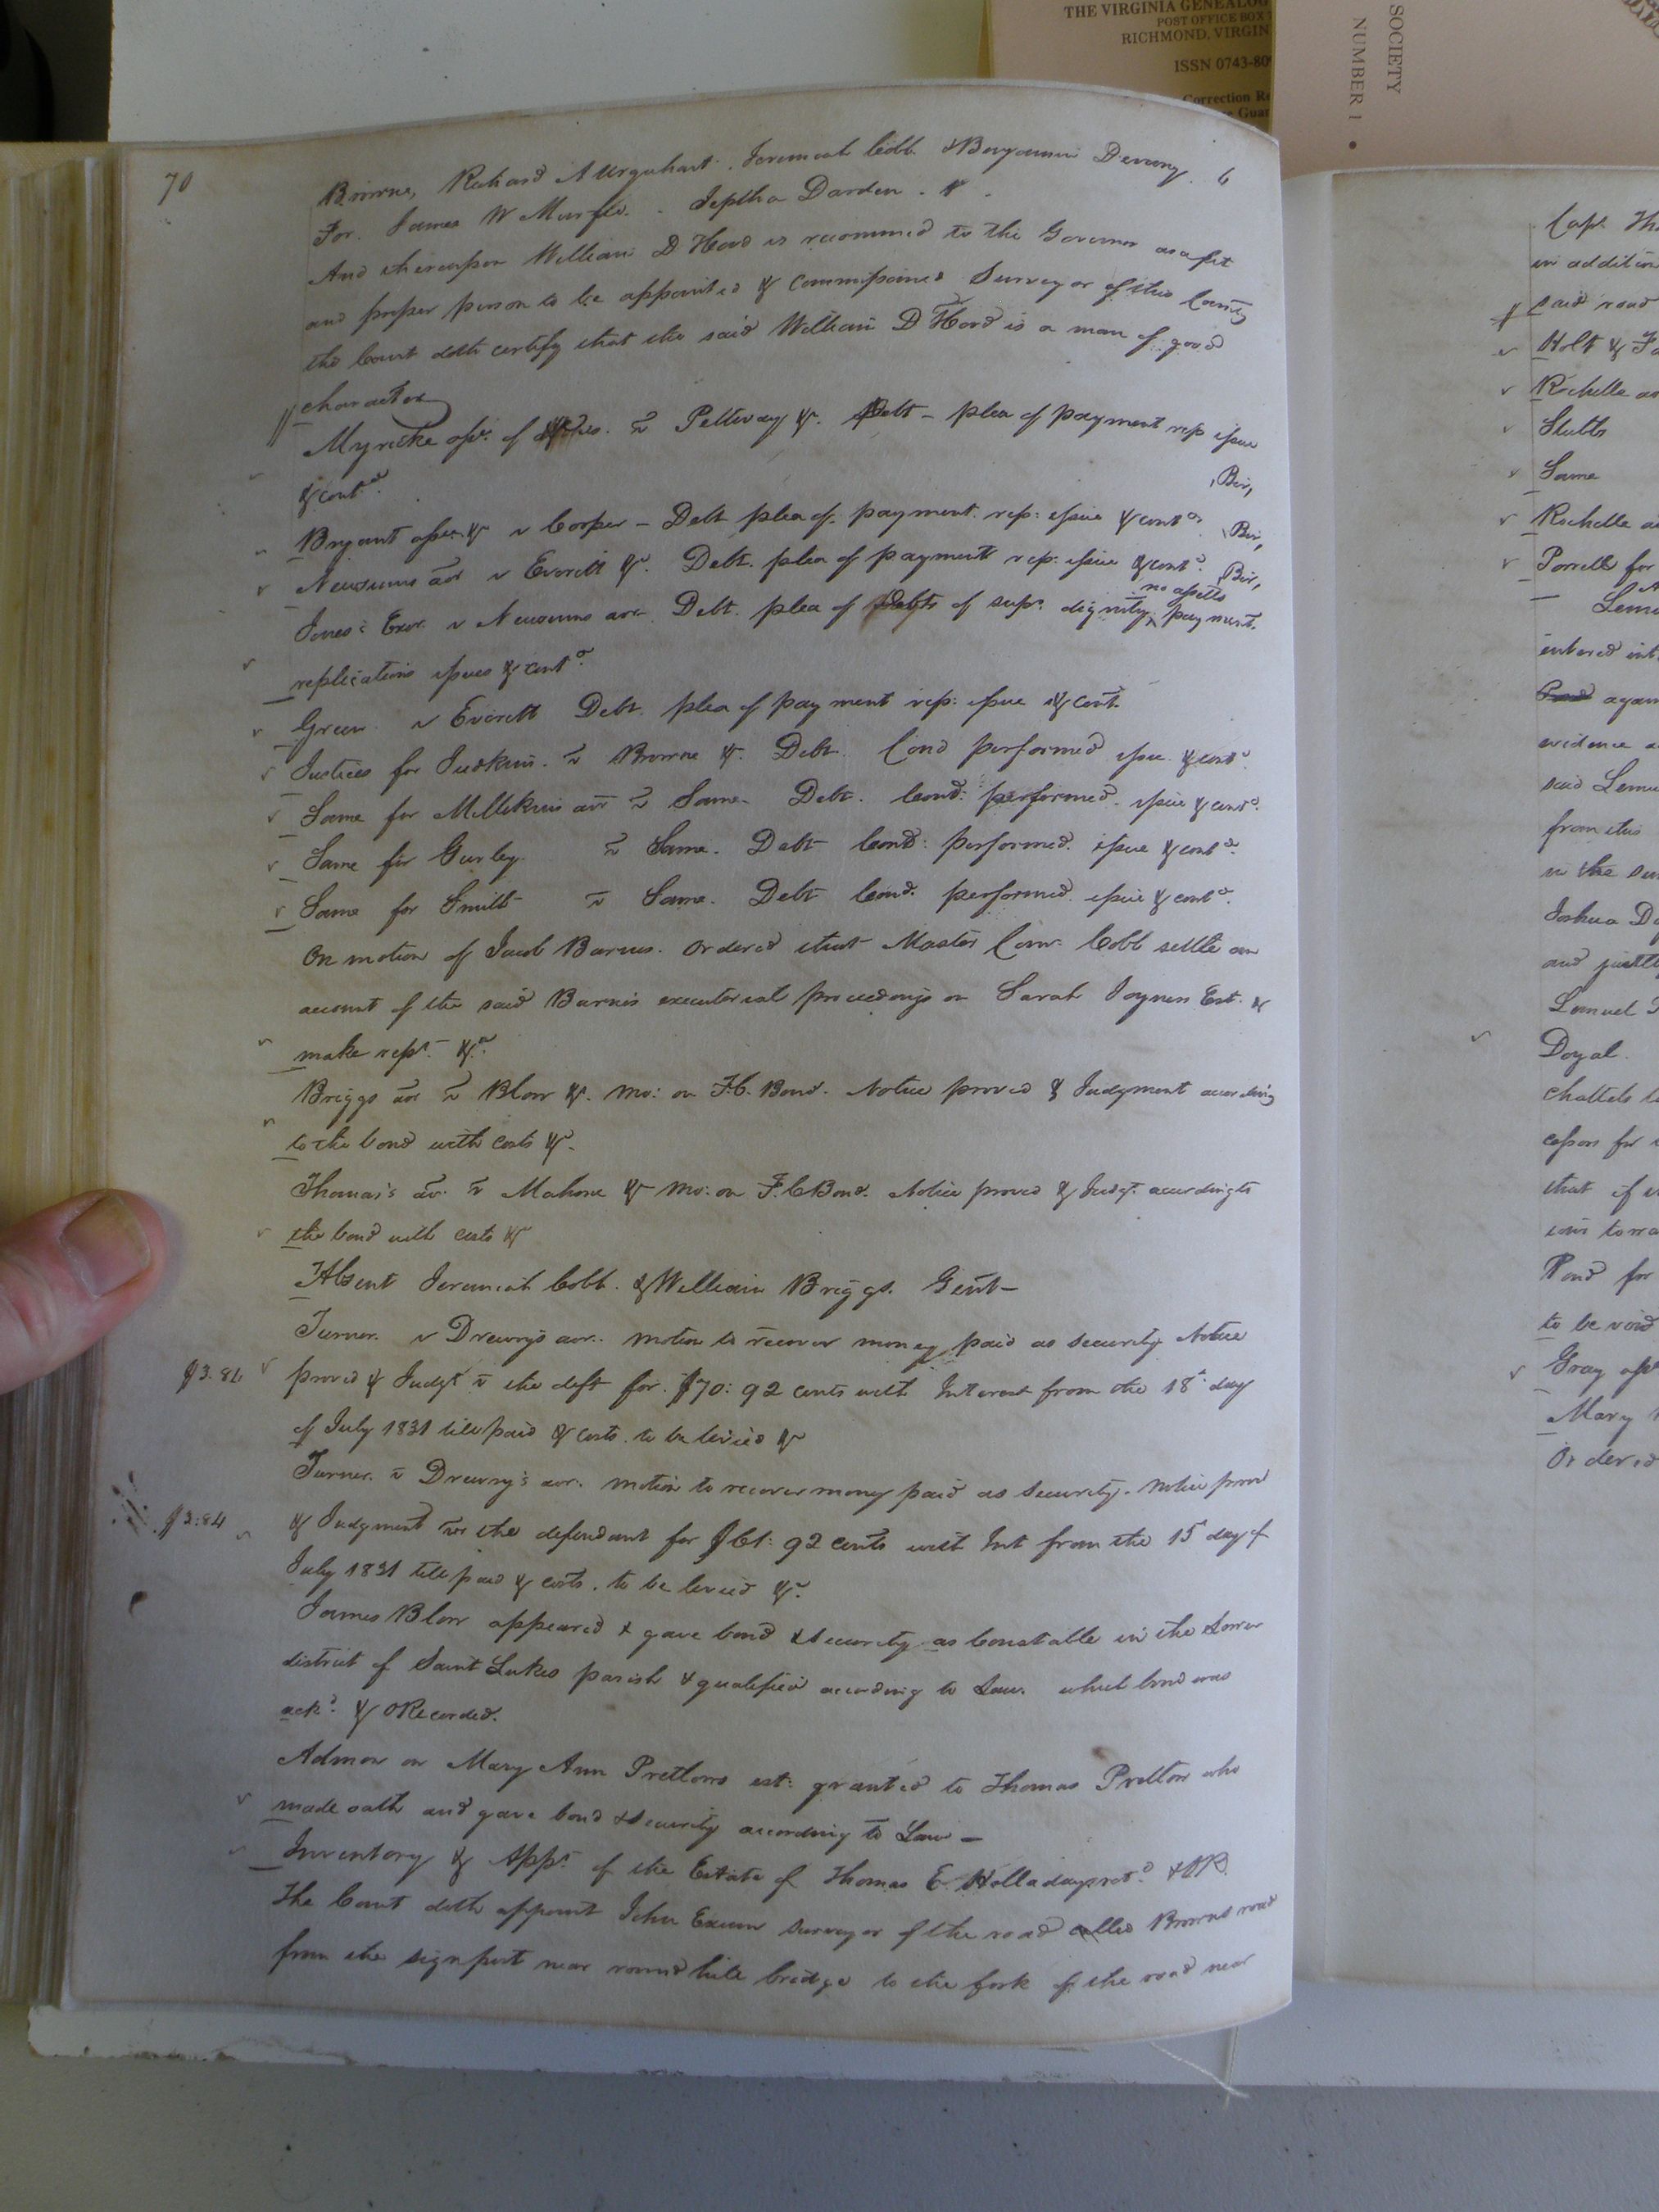 THE VIRGINIA GENEALOG
POST OFFICE BOX
RICHMOND, VIRGIN
ISSN 0743-80
Correction Re
Guar
SOCIETY
NUMBER 1 •
70
Browne, Richard A Urquhart. Jeremiah Cobb. & Benjamin Devany. 6
For. James W Murfee. Jeptha Darden. 1.
And thereupon William D. Hood is recommed to the Governor as a fit
and proper person to be appointed & Commissioned Surveyor of this County
the Court doth certify that the said William D Hood is a man of good
character
Myricke assee. of vs Pettway &c. Debt - plea of payment rep issue
& contd. Bir,
Bryant assee. &c v Cooper - Debt plea of payment. rep: issue & contd. Bir,
Newsums aor v Everitt &c. Debt. plea of payment rep: issue & contd. Bir,
no assetts
Jones's Exor. v Newsums aor. Debt. plea of debts of supr. dignity, payment.
replications issues & contd.
Green v Everett Debt. plea of payment rep: issue & cont.
Justices for Judkins. vs Browne &c. Debt. Cond performed issue. & contd.
Same for Millikins aor vs Same. Debt. Cond: performed. issue & contd.
Same for Gurley. vs Same. Debt Cond: performed. issue & contd.
Same for Smith vs Same. Debt Cond. performed. issue & contd.
On motion of Jacob Barnes. Ordered that Master Comr. Cobb settle an
account of the said Barnes executorial proceedings on Sarah Joyners Est. &
make rept. &c.
Briggs aor vs Blow &c. Mo: on F.C. Bond. Notice proved & Judgment according
to the bond with costs &c.
Thomas's aor. vs Mahone &c Mo: on F.C Bond. Notice proved & Judgt. according to
the bond with costs &c
Absent Jeremiah Cobb. & William Briggs. Gent-
Turner. v Drewry's aor. motion to recover money paid as security Notice
$3.84 proved & Judgt vs the deft for $70: 92 cents with Interest from the 18th day
of July 1831 till paid & costs. to be levied &c
Turner. vs Drewry's aor. motion to recover money paid as security. Notice prov'd
$3:84 & Judgment vs the defendant for $61: 92 cents with Int from the 15th day of
July 1831 till paid & costs. to be levied &c.
James Blow appeared & gave bond & security as Constable in the Lower
district of Saint Lukes parish & qualified according to Law. which bond was
ackd. & ORecorded.
Admon on Mary Ann Pretlows est: granted to Thomas Pretlow who
made oath and gave bond & security according to Law -
Inventory & Appt. of the Estate of Thomas E. Holladay retd. & OR.
The Court doth appoint John Exum surveyor of the road called Browns road
from the sign post near round hill bridge to the fork of the road near
Capt. Th
in addition
said road
Holt & Fa
Rochelle as
Stubbs
Same
Rochelle a
Porrell for
Lemu
entered int
again
evidence a
said Lemu
from this
in the sum
Joshua Do
and justly
Lemuel
Doyal.
Chattels
that if
Bond for
to be void
Gray
Mary
Ordered